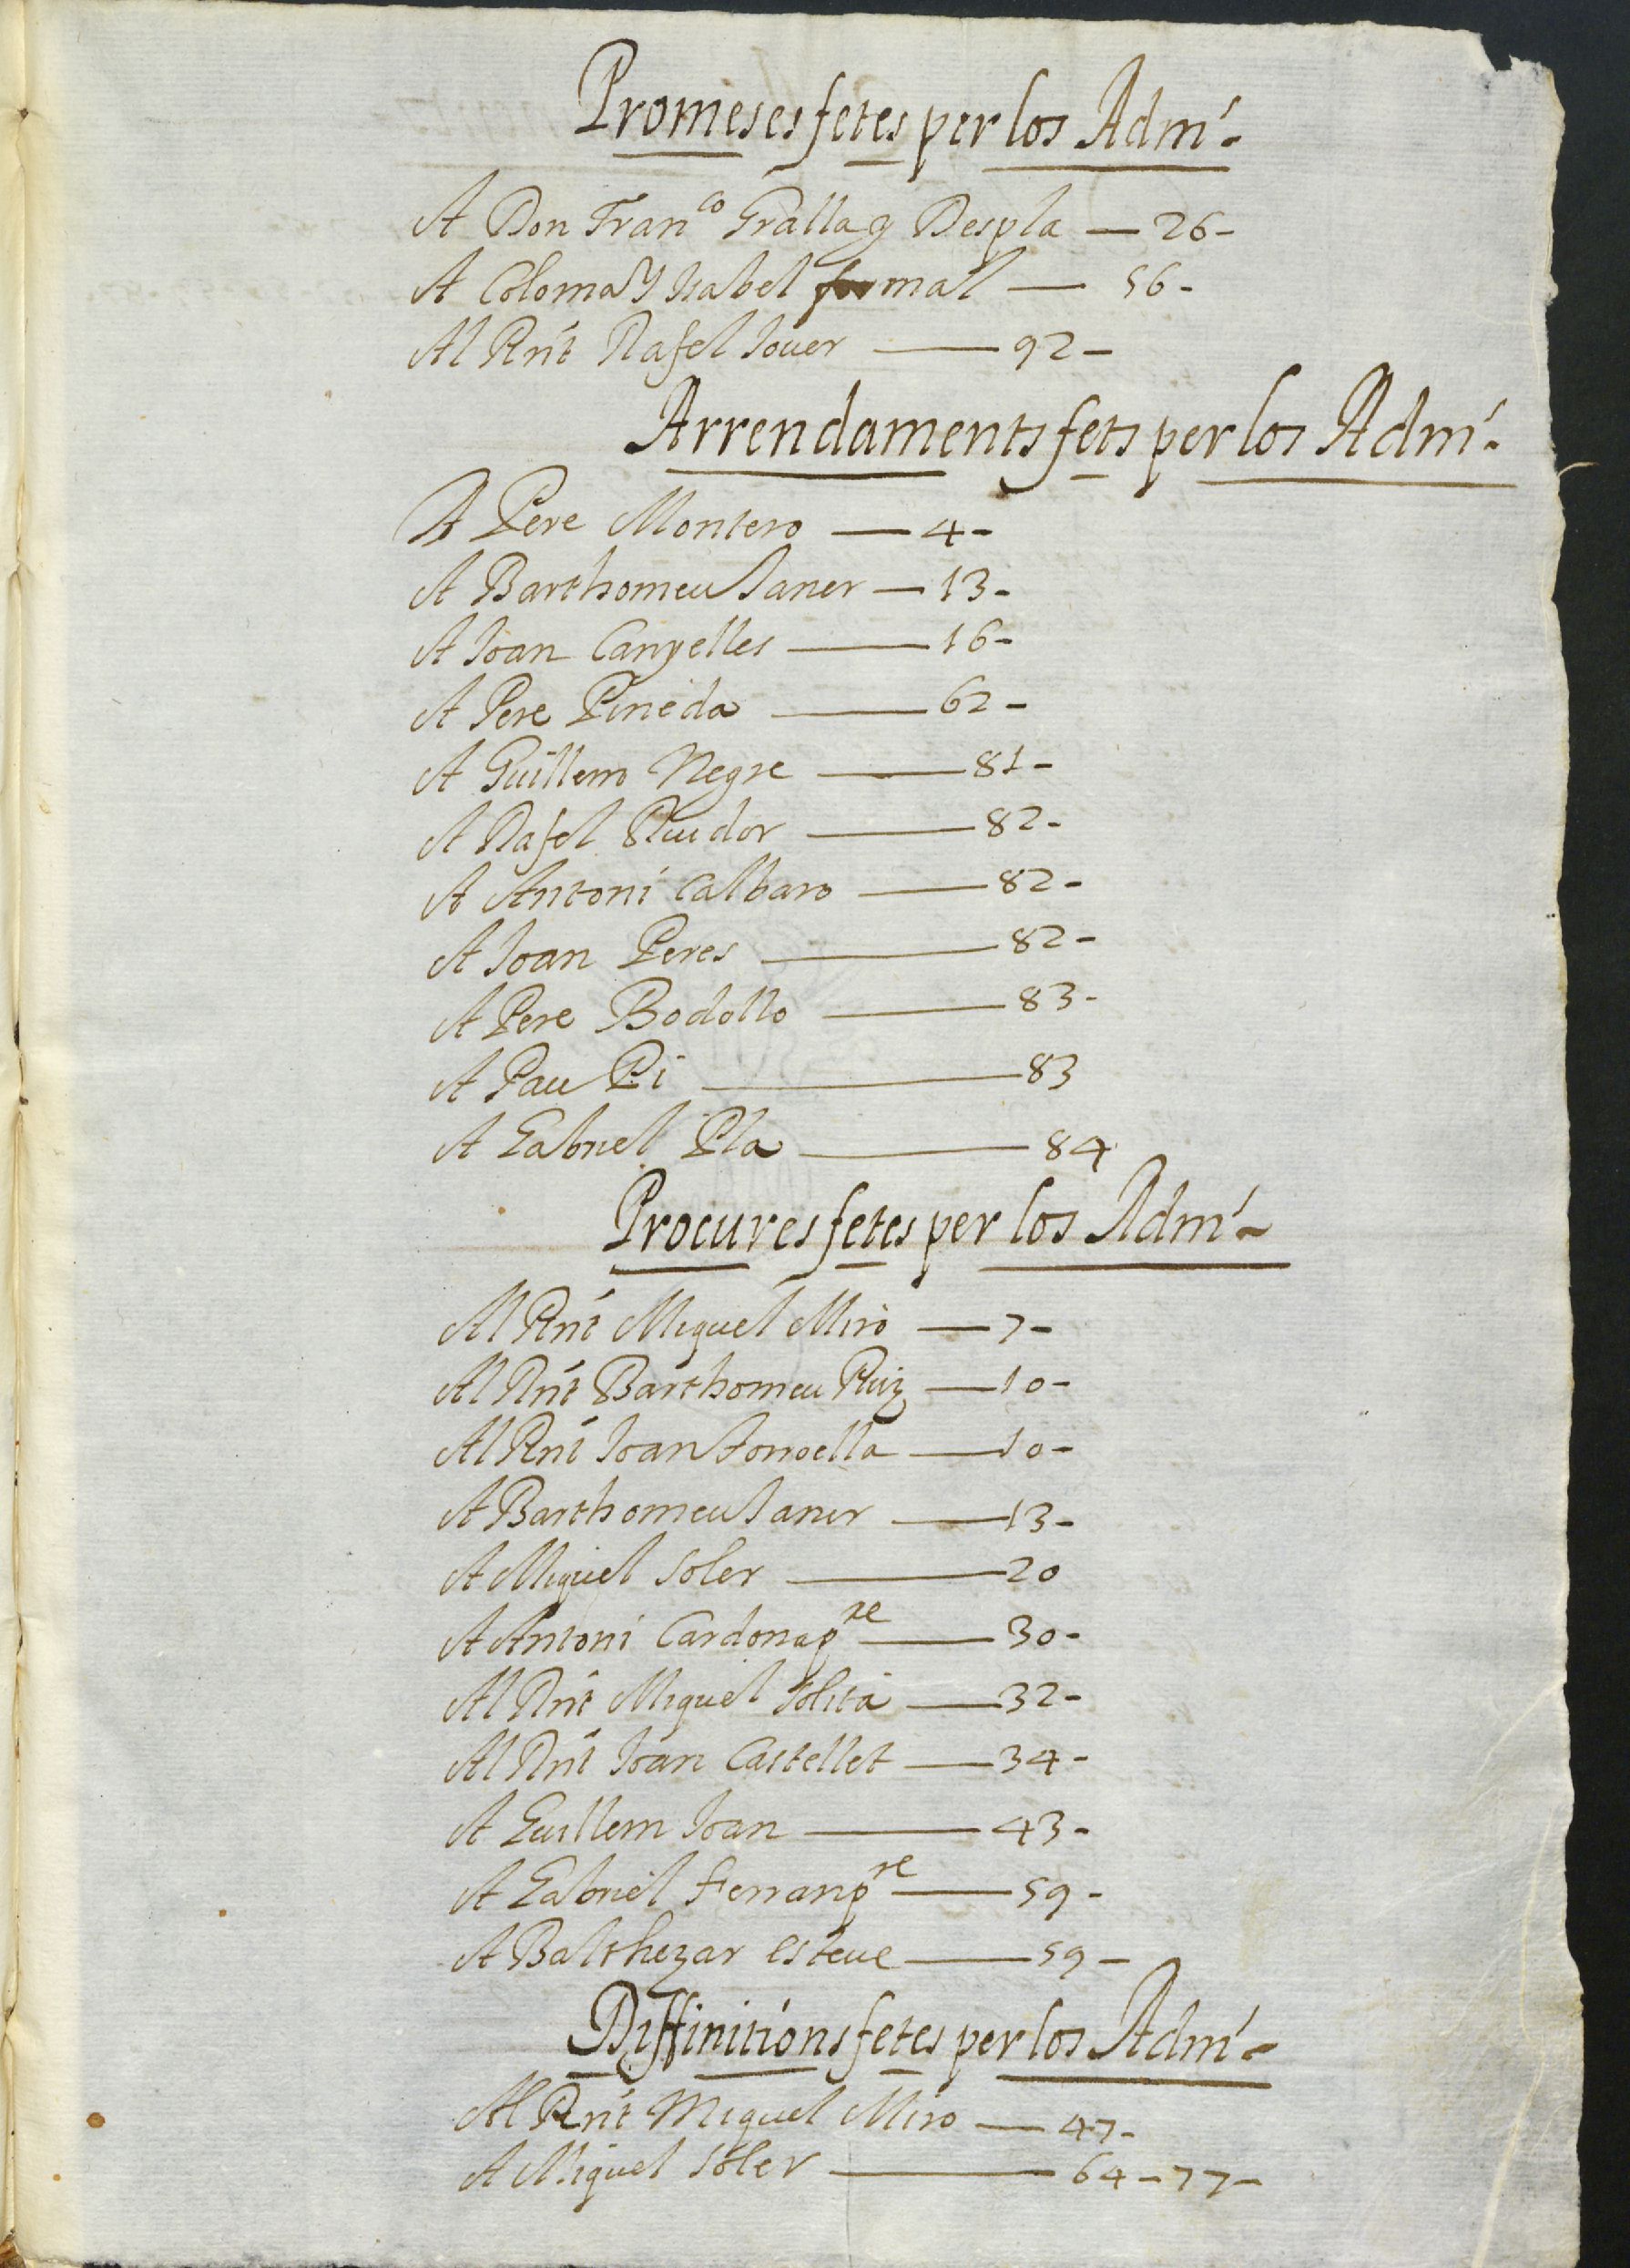 Promeses fetes per los Admí-
A Don Franco Gralla y Despla — 26-
A Coloma Y Isabel formal — 56-
Al Rnt Rafel Jouer — 92-
Arrendaments fets per los Admí-
A Pere Montero — 4-
A Barthomeu Janer — 13-
A Joan Canyelles — 16-
A Pere Pineda — 62-
A Guillem Negre — 81-
A Rafel — 82-
A Antoni Calbaro — 82-
A Joan Peres — 82-
A Pere Bodollo — 83-
A Pau Pi — 83
A Gabriel Pla — 84
Procures fetes per los Admí-
Al Rnt Miquel Miro — 7-
Al Rnt Barthomeu Ruiz — 10-
Al Rnt Joan — 10-
A Barthomeu Janer — 13-
A Miquel Soler — 20
A Antoni Cardona pre — 30-
Al Rnt Miquel Solita — 32-
Al Rnt Joan Castellet — 34-
A Guillem Joan — 43-
A Gabriel Ferran pre — 59-
A Balthezar esteue — 59-
Diffinitions fetes per los Admí-
Al Rnt Miquel Miro — 47-
A Miquel Soler — 64-77-